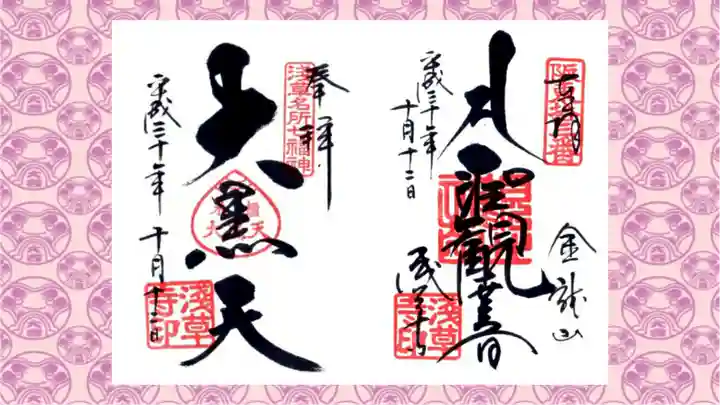 奉拝
坂東拾三番
金龍山
聖観世音
浅草寺
平成三十年
十月十二日
浅草寺印
奉拝
浅草名所七福神
大黒天
平成三十年 十月十二日
浅草寺印